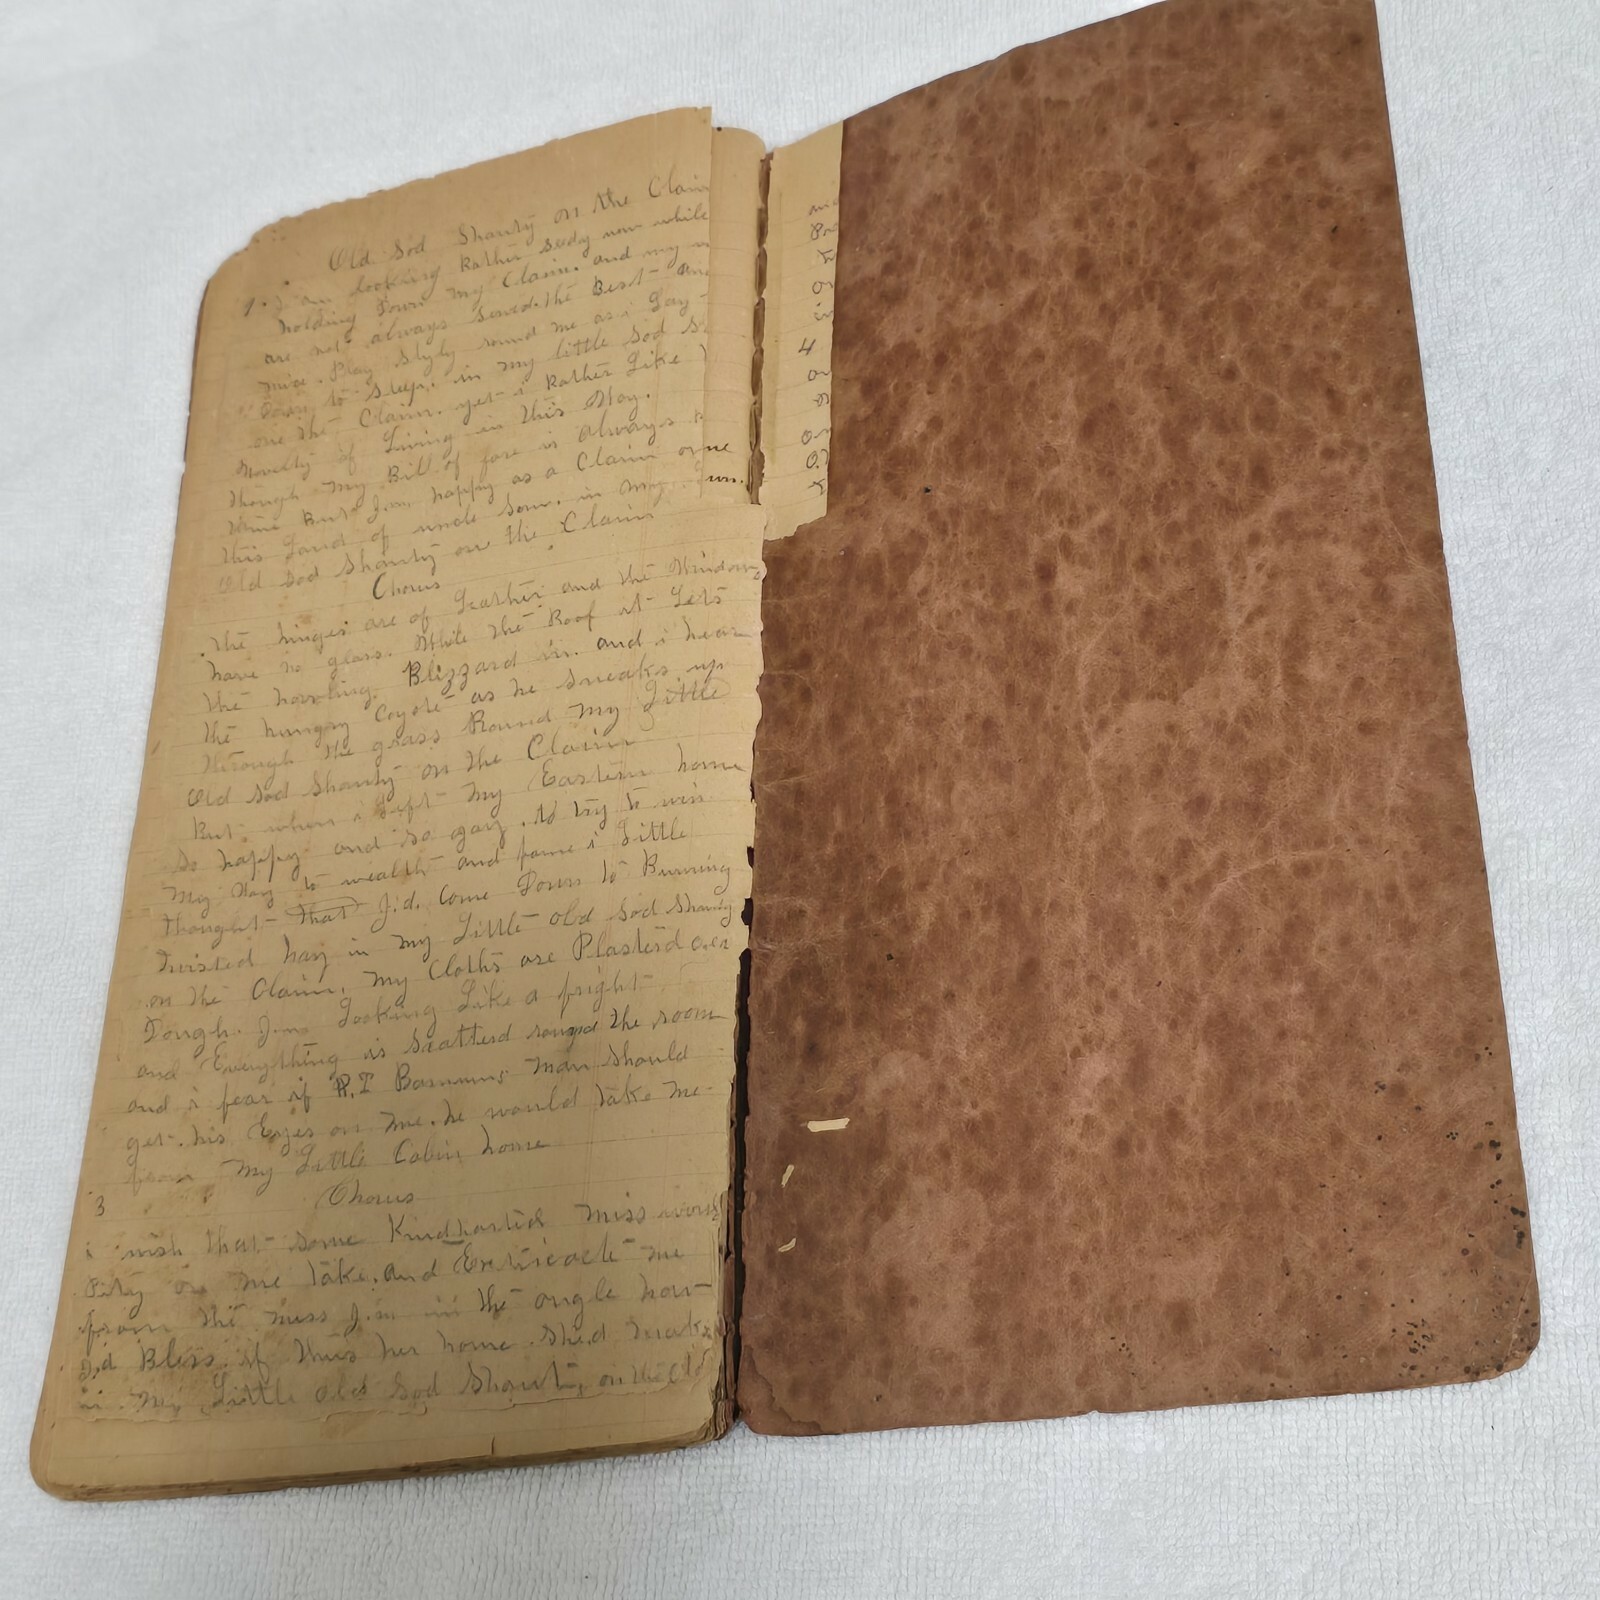 Old Sod Shanty on the Claim
1. I am looking Rather seedy now while
holding Down my Claim. and my
are not always served. the Best and
mice. Play Slyly round me as i Lay
Down to sleep. in my little Sod
one the Claim. yet i Rather Like
Novelty of Living in this Way.
though my Bill of fare is always
tame But I,m happy as a Claim one
this Land of uncle Sam. in my
Old Sod Shanty on the Claim
Chorus
the hinges are of Leather and the Windows
have no glass. While the Roof it Lets
the howling Blizzard in. and i hear
the hungry Coyote as he sneaks up
through the grass Round my Little
Old Sod Shanty on the Claim
But when i Left my Eastern home
So happy and so gay. to try to win
My Way to wealth and fame i Little
thought that I,d. come Down to Burning
twisted hay in my Little old Sod Shanty
on the Claim. my Cloths are Plasterd over
Dough. I,m Looking Like a fright
and Everything is Scatterd round the room
and i fear if P.T Barnums man should
get. his Eyes on me. he would take me
from my Little Cabin home
Chorus
3
i wish that some Kindhartid miss would
Pity on me take. and me
from the mess I,m in the angle how
I,d Bless. if this her home. She,d
in my Little old Sod Shanty on the
and
4
on
on